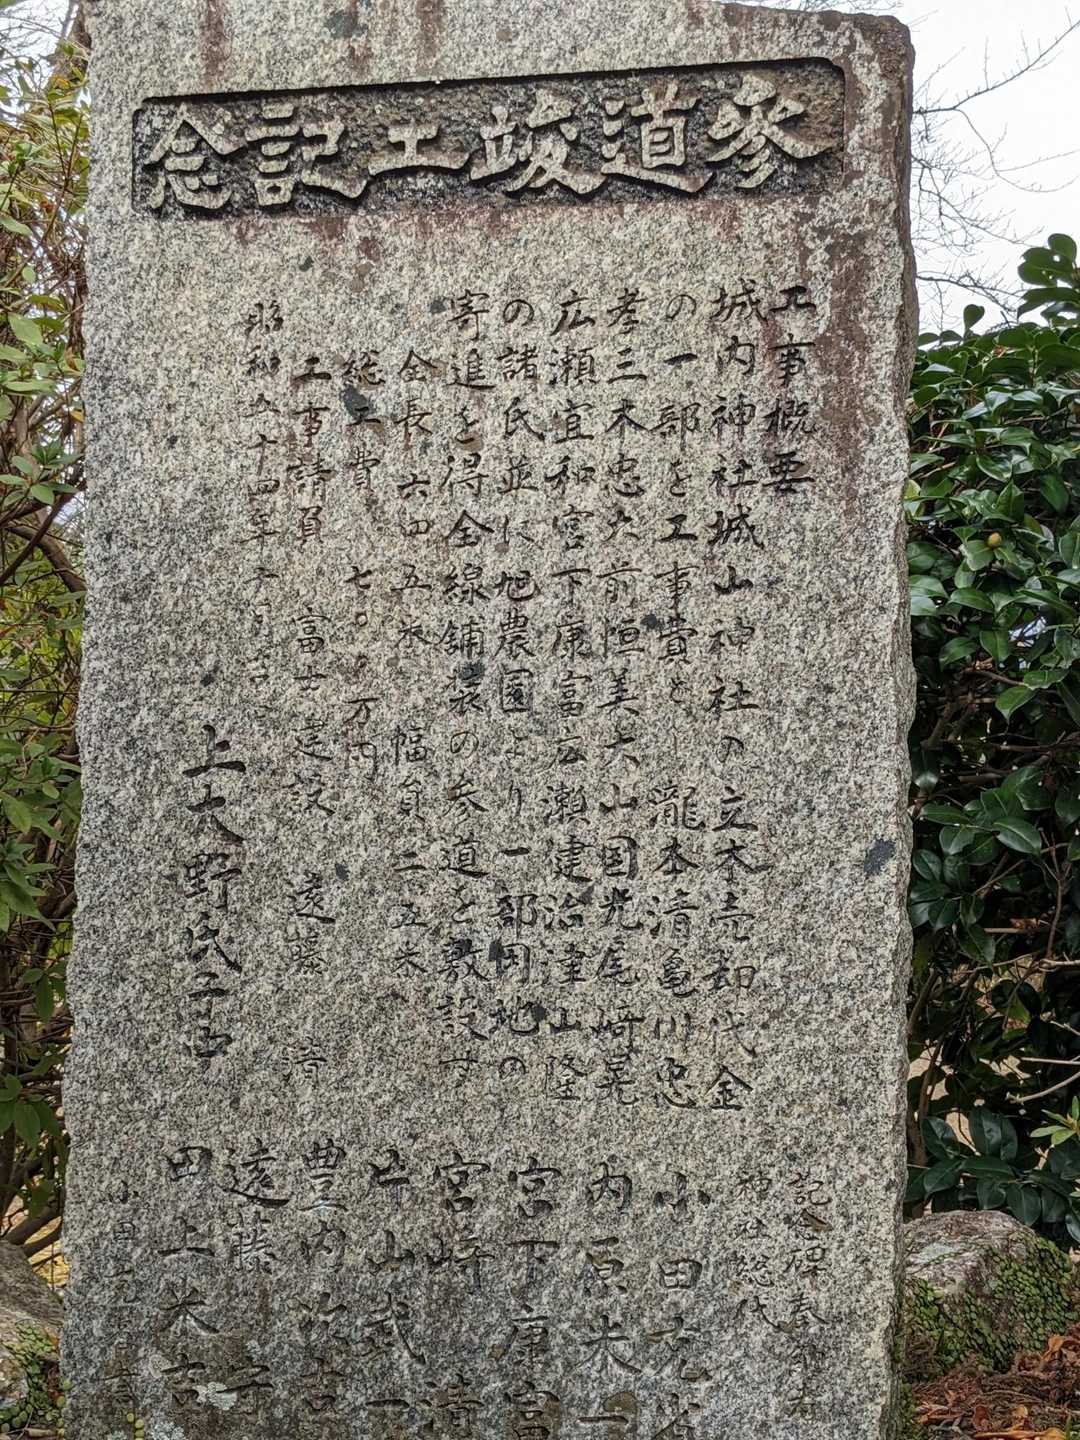 参道竣工記念
工事概要
城内神社城山神社の立木売却代金
の一部を工事費とし瀧本清亀川忠
孝三木忠大前恒美大山国光尾崎晃
広瀬宜和宮下康富広瀬建治津山隆
の諸氏並に旭農園より一部用地の
寄進を得全線舗装の参道を敷設す
全長六四五米 幅員二五米
総工費 七〇〇万円
工事請負 富士建設 遠藤 清
昭和五十四年
上大野氏子中
記念碑
神社総代
小田
内原米一
宮下康富
宮崎 清
片山武
豊内
遠藤 守
田上米吉
小田